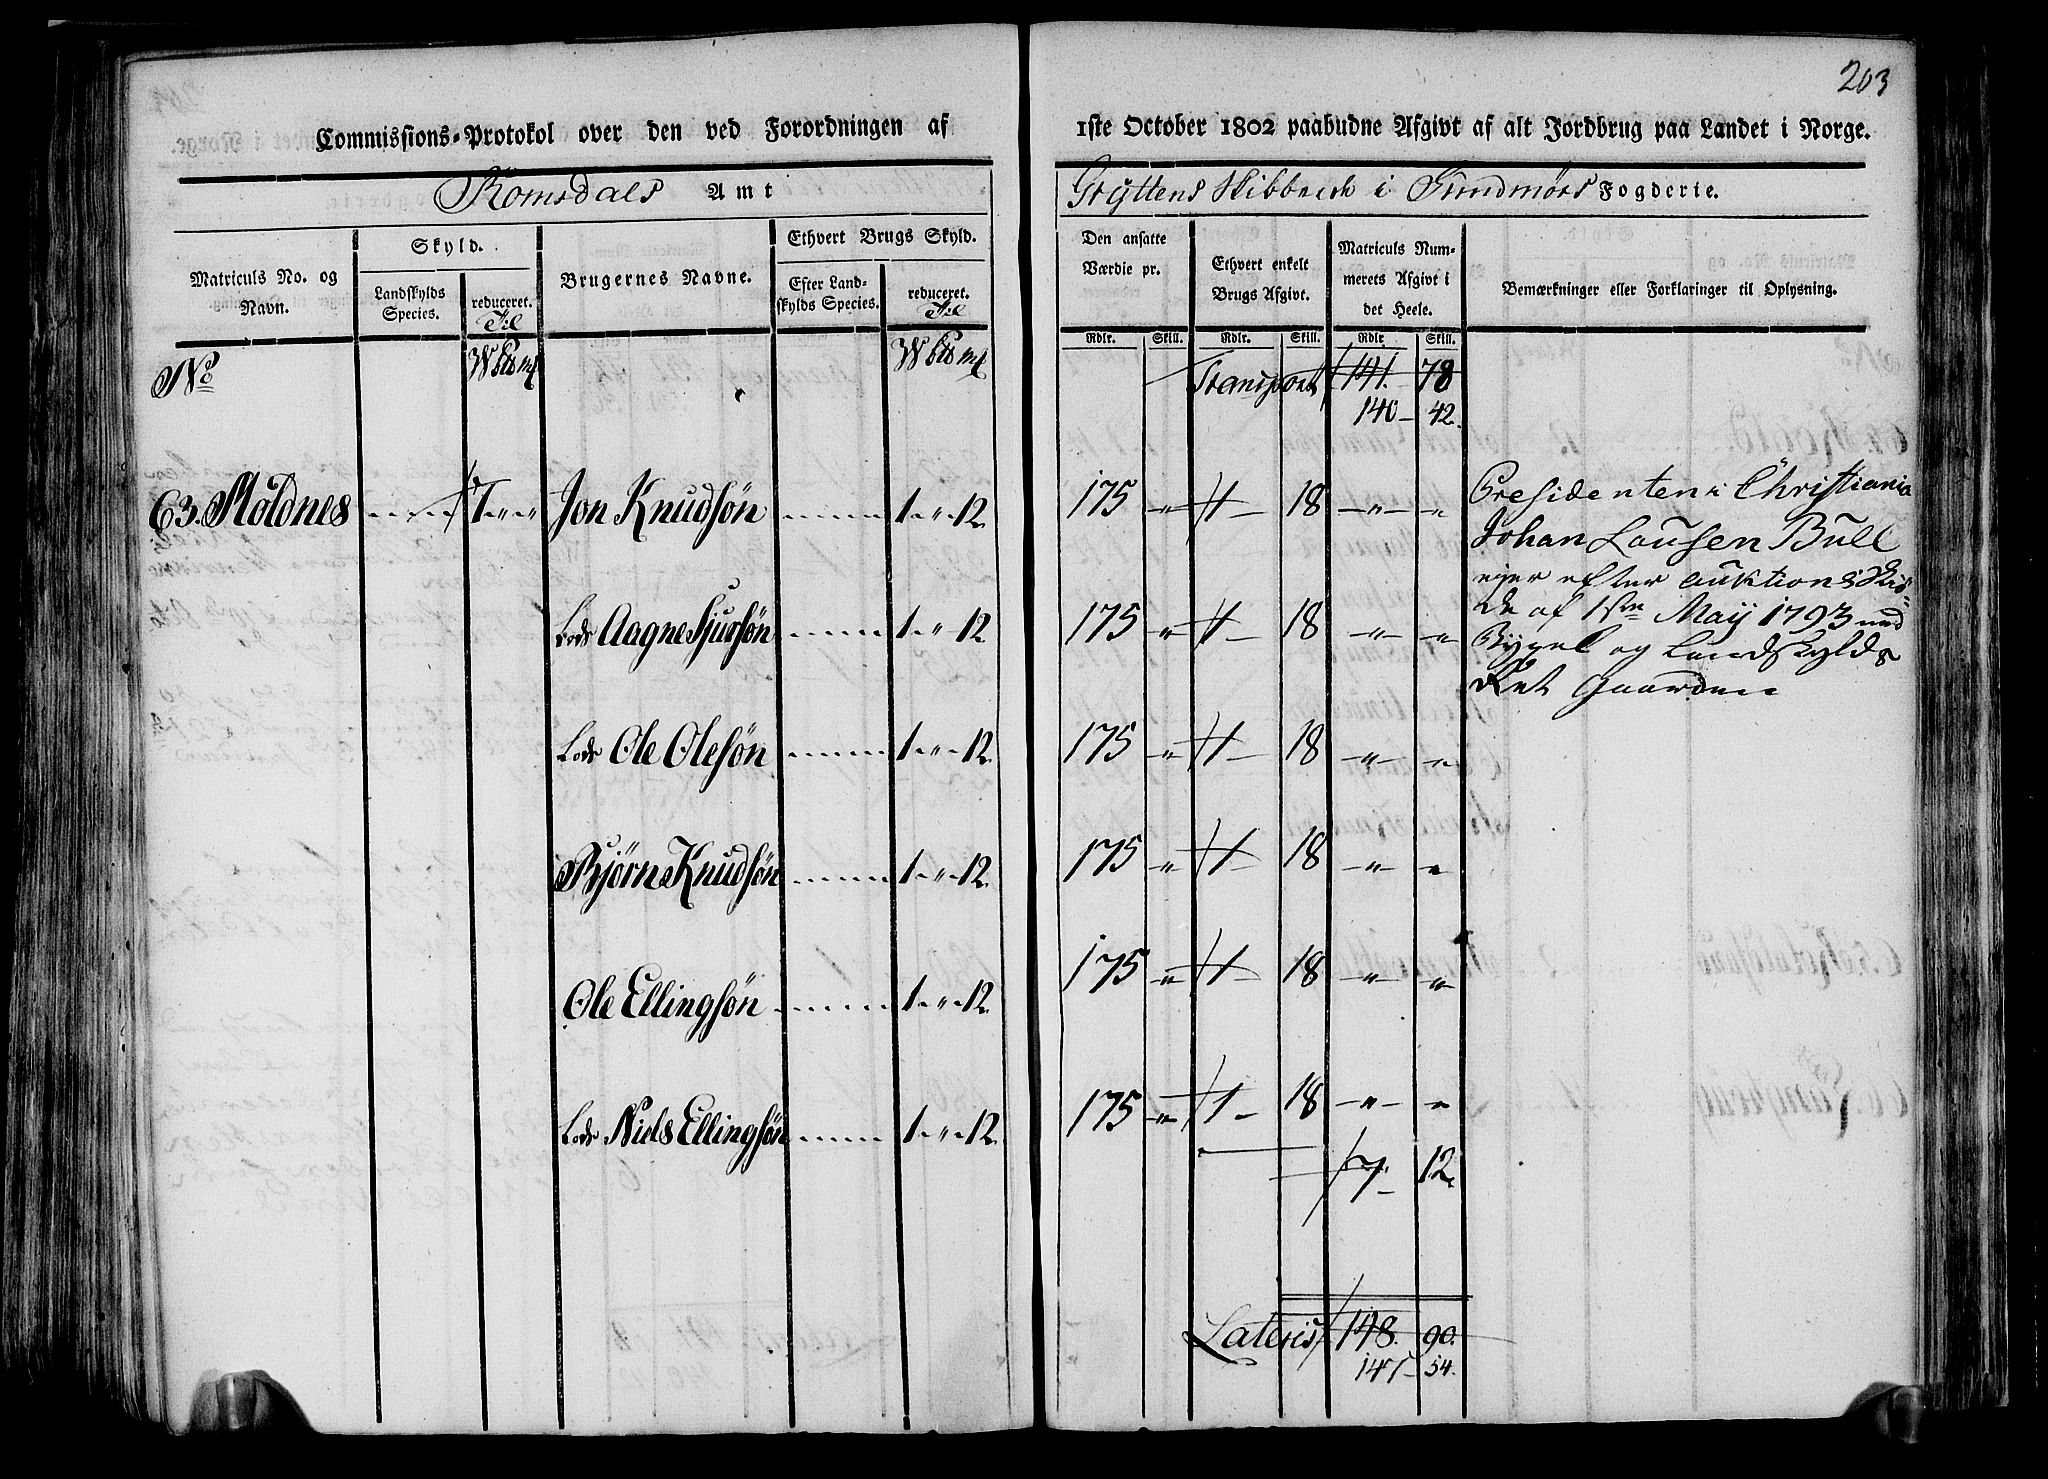 203
Commissions-Protokol over den ved Forordningen af 1ste October 1802 paabudne Afgivt af alt Jordbrug paa Landet i Norge.
Romsdals Amt
Gryttens Skibbrede i Sundmørs Fogderie.
Matriculs No. og Navn.
Skyld.
Landskylds Species.
reduceret.
Brugernes Navne.
Ethvert Brugs Skyld.
Efter Landskylds Species.
reduceret.
Den ansatte Værdie pr.
Ethvert enkelt Brugs Afgivt.
Matriculs Nummerets Afgivt i det Heele.
Bemærkninger eller Forklaringer til Oplysning.
Rdlr. Skill. Rdlr. Skill. Rdlr. Skill.
No W Pd mk W Pd mk Transport 141. 78
140 - 42.
63. Moldnes 7 " " Jon Knudsøn 1 - " - 12 175 " 1 - 18 - " - "
Lods Aagne Sjursøn 1 - " - 12 175 " 1 - 18 - " - "
Lods Ole Olesøn 1 - " - 12 175 " 1 - 18 - " - "
Bjørn Knudsøn 1 - " - 12 175 " 1 - 18 - " - "
Ole Ellingsøn 1 - " - 12 175 " 1 - 18 - " - "
Lods Niels Ellingsøn 1 - " - 12 175 " 1 - 18 - " - "
7 - 12.
Presidenten i Christiania
Johan Lausen Bull
ejer efter auktions Skiø-
de af 1ste Maij 1793 med
Bygsel og Landskylds
Ret Gaarden
Lateris 148. 90.
147 - 54.